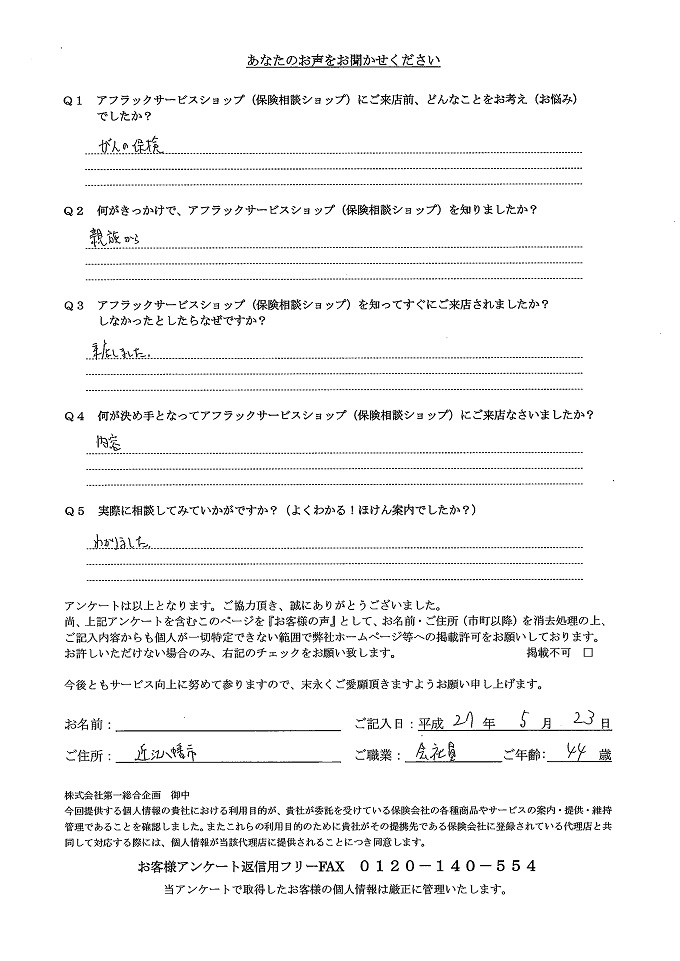 あなたのお声をお聞かせください
Q1 アフラックサービスショップ（保険相談ショップ）にご来店前、どんなことをお考え（お悩み）
でしたか？
がんの保険
Q2 何がきっかけで、アフラックサービスショップ（保険相談ショップ）を知りましたか？
親族から
Q3 アフラックサービスショップ（保険相談ショップ）を知ってすぐにご来店されましたか？
しなかったとしたらなぜですか？
来店しました。
Q4 何が決め手となってアフラックサービスショップ（保険相談ショップ）にご来店なさいましたか？
内容
Q5 実際に相談してみていかがですか？（よくわかる！ほけん案内でしたか？）
わかりました。
アンケートは以上となります。ご協力頂き、誠にありがとうございました。
尚、上記アンケートを含むこのページを『お客様の声』として、お名前・ご住所（市町以降）を消去処理の上、
ご記入内容からも個人が一切特定できない範囲で弊社ホームページ等への掲載許可をお願いしております。
お許しいただけない場合のみ、右記のチェックをお願い致します。 掲載不可 □
今後ともサービス向上に努めて参りますので、末永くご愛顧頂きますようお願い申し上げます。
お名前： ご記入日：平成 27 年 5 月 23 日
ご住所： 近江八幡市 ご職業： 会社員 ご年齢： 44 歳
株式会社第一総合企画 御中
今回提供する個人情報の貴社における利用目的が、貴社が委託を受けている保険会社の各種商品やサービスの案内・提供・維持
管理であることを確認しました。またこれらの利用目的のために貴社がその提携先である保険会社に登録されている代理店と共
同して対応する際には、個人情報が当該代理店に提供されることにつき同意します。
お客様アンケート返信用フリーFAX 0120－140－554
当アンケートで取得したお客様の個人情報は厳正に管理いたします。